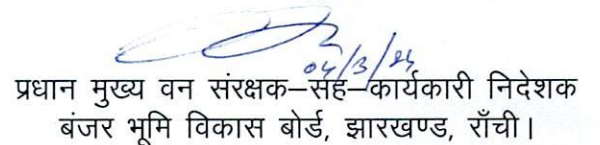 04/3/24
प्रधान मुख्य वन संरक्षक–सह–कार्यकारी निदेशक
बंजर भूमि विकास बोर्ड, झारखण्ड, राँची।